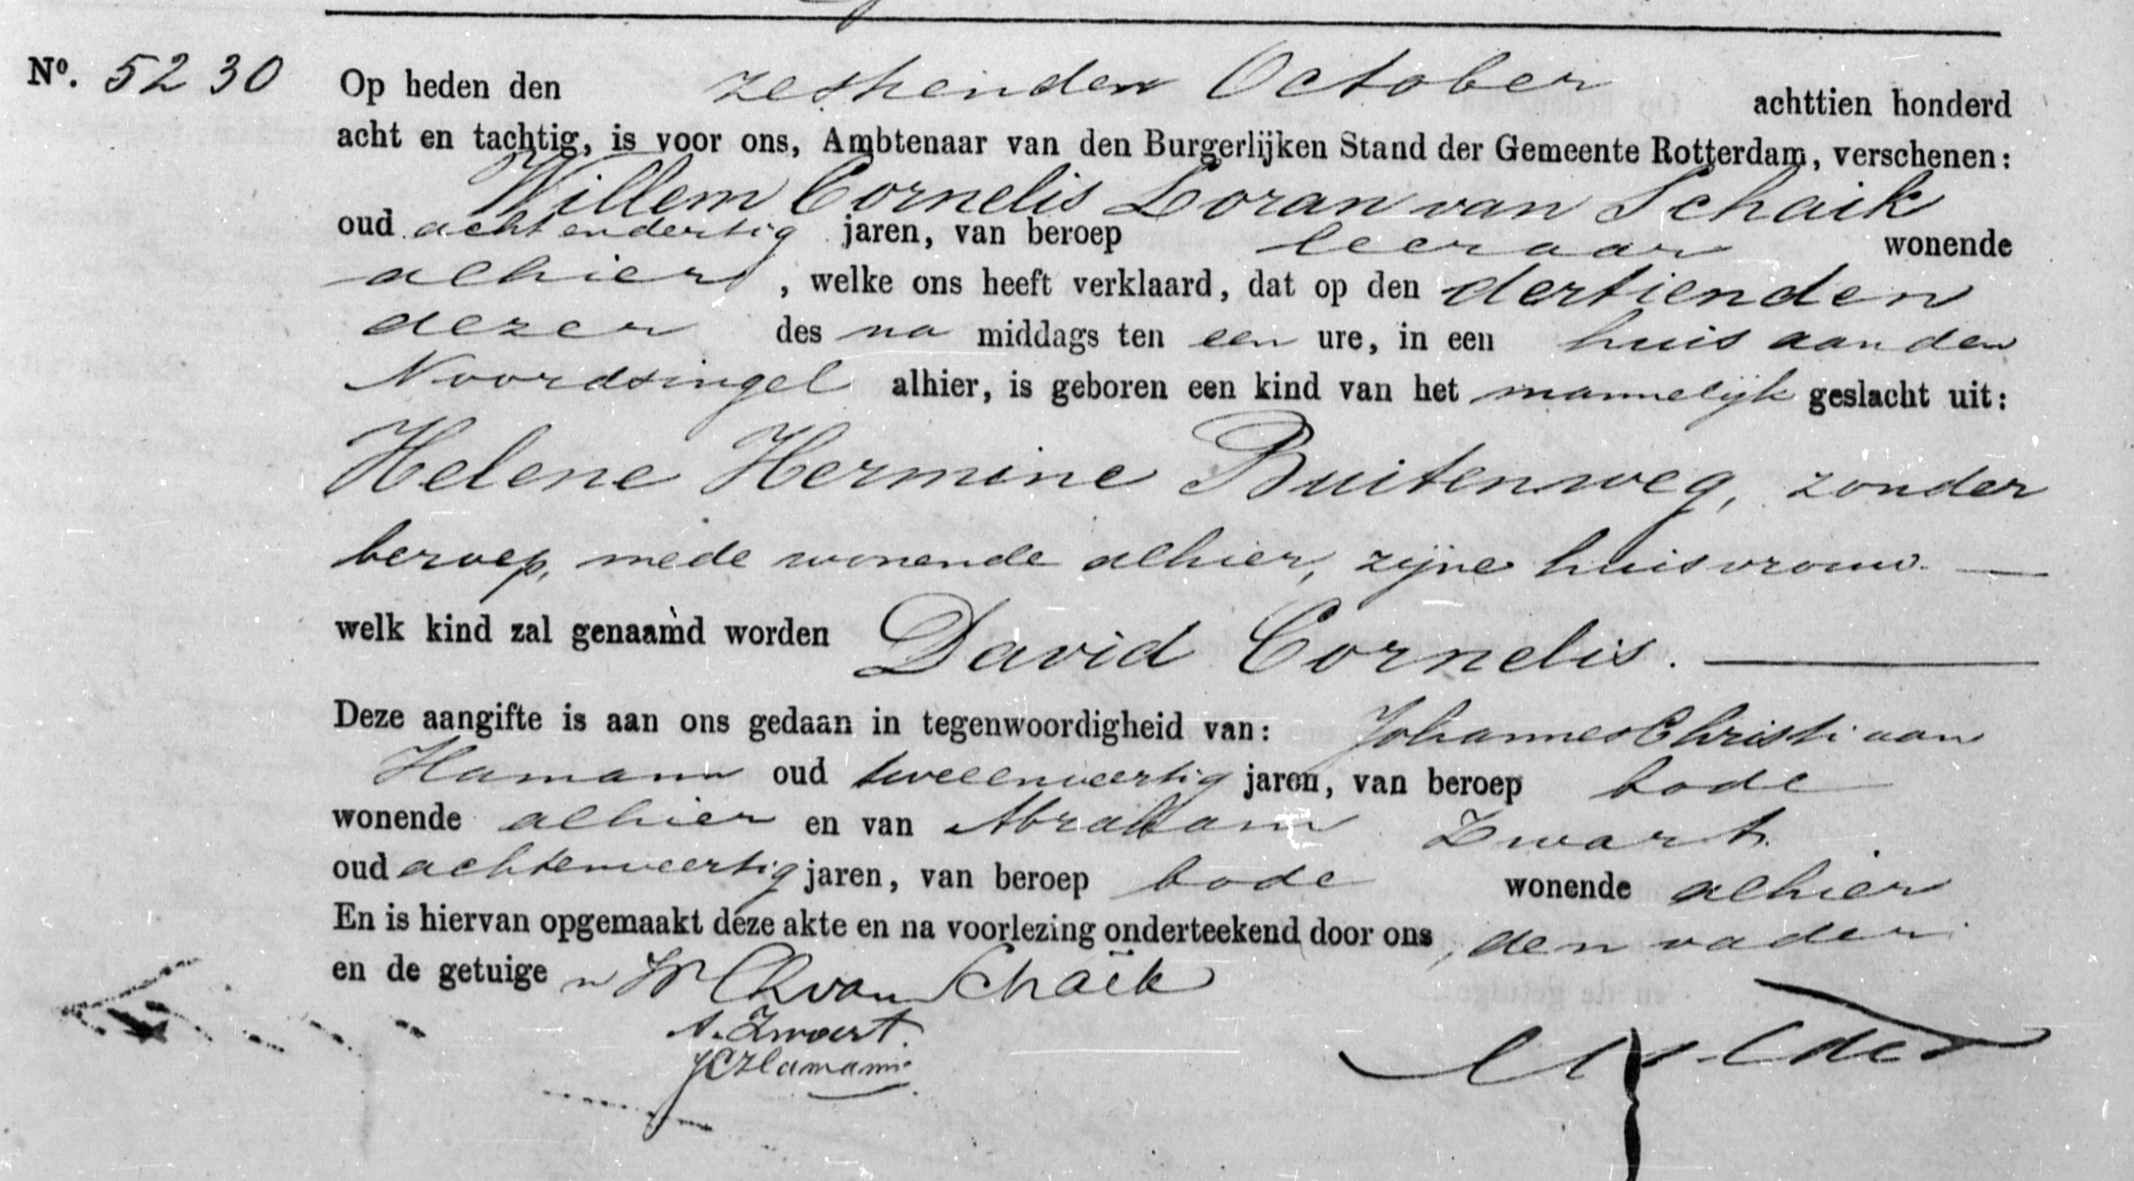 No. 5230 Op heden den zestienden October achttien honderd
acht en tachtig, is voor ons, Ambtenaar van den Burgerlijken Stand der Gemeente Rotterdam, verschenen:
Willem Cornelis Loran van Schaik
oud achtendertig jaren, van beroep leeraar wonende
alhier, welke ons heeft verklaard, dat op den dertienden
dezer des na middags ten een ure, in een huis aan den
Noordsingel alhier, is geboren een kind van het mannelijk geslacht uit:
Helene Hermine Buitenweg, zonder
beroep, mede wonende alhier, zijne huisvrouw.
welk kind zal genaamd worden David Cornelis.
Deze aangifte is aan ons gedaan in tegenwoordigheid van: Johannes Christiaan
Hamann oud tweeenveertig jaren, van beroep bode
wonende alhier en van Abraham Zwart
oud achtenveertig jaren, van beroep bode wonende alhier
En is hiervan opgemaakt deze akte en na voorlezing onderteekend door ons, den vader
en de getuigen W C L van Schaïk
A. Zwart.
JCHamann